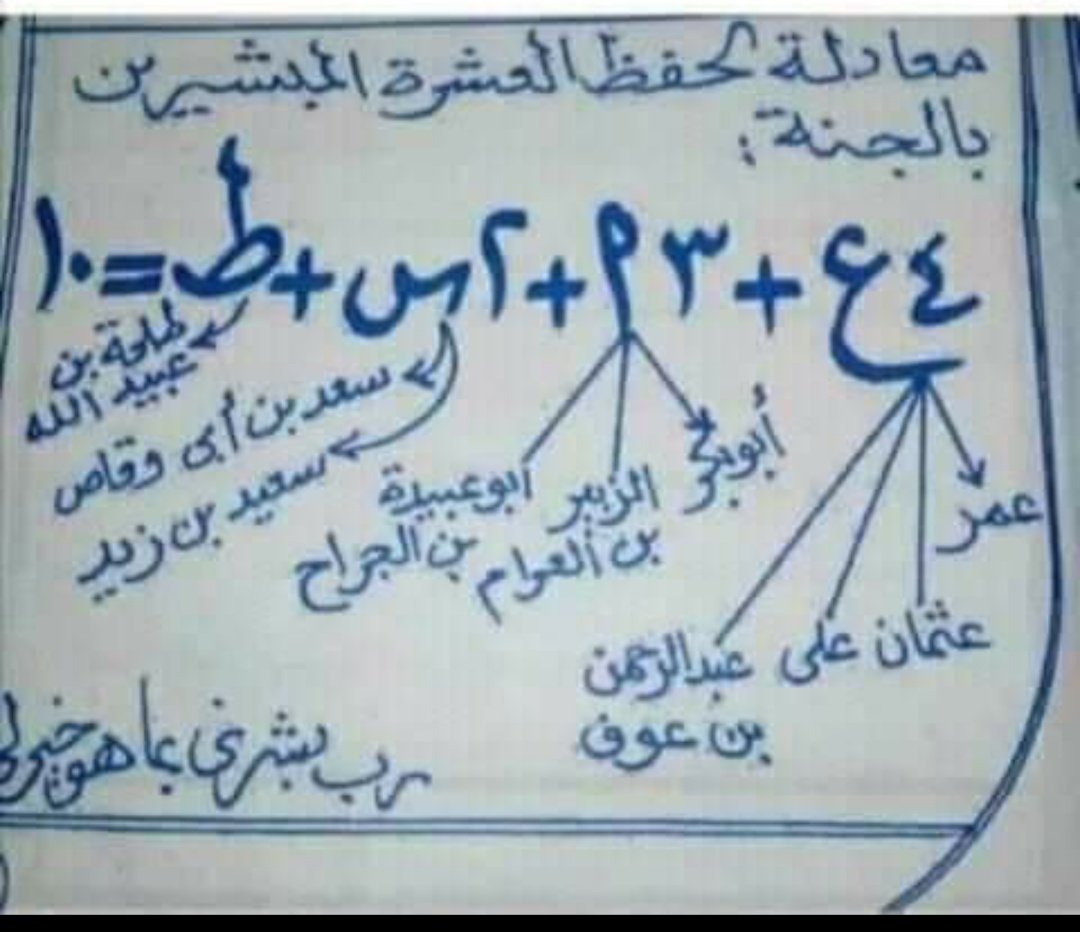 معادلة لحفظ العشرة المبشيرين
بالجنة:
٤ع + ٣أ + ٢س + ط = ١٠
عمر
عثمان
على
عبدالرحمن
بن عوف
أبوبكر
الزبير
بن العوام
ابوعبيدة
بن الجراح
سعد بن أبى وقاص
سعيد بن زيد
طلحة بن
عبيد الله
رب بشرنى بما هو خير لى